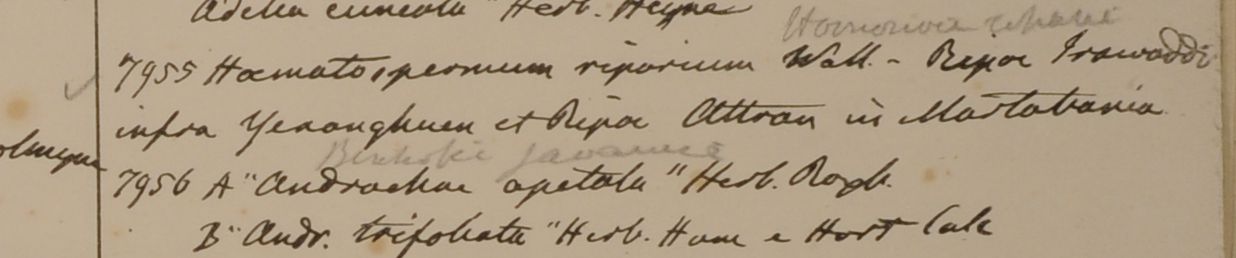 Adelia cuneata "Herb. Heyne
Homonoia
7955 Hæmatospermum riparium Wall. - Ripæ Irawaddi
infra Yenanghuen et Ripæ Attran in Martabania
Bischofia Javanica
7956 A" Andrachne apetala " Herb. Roxb.
B" Andr. trifoliata " Herb. Ham e Hort Calc